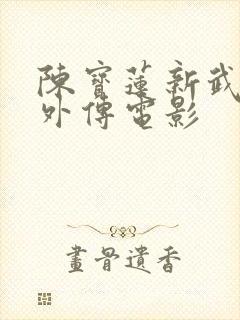 陳寶蓮新武
外傳電影
畫骨遺香